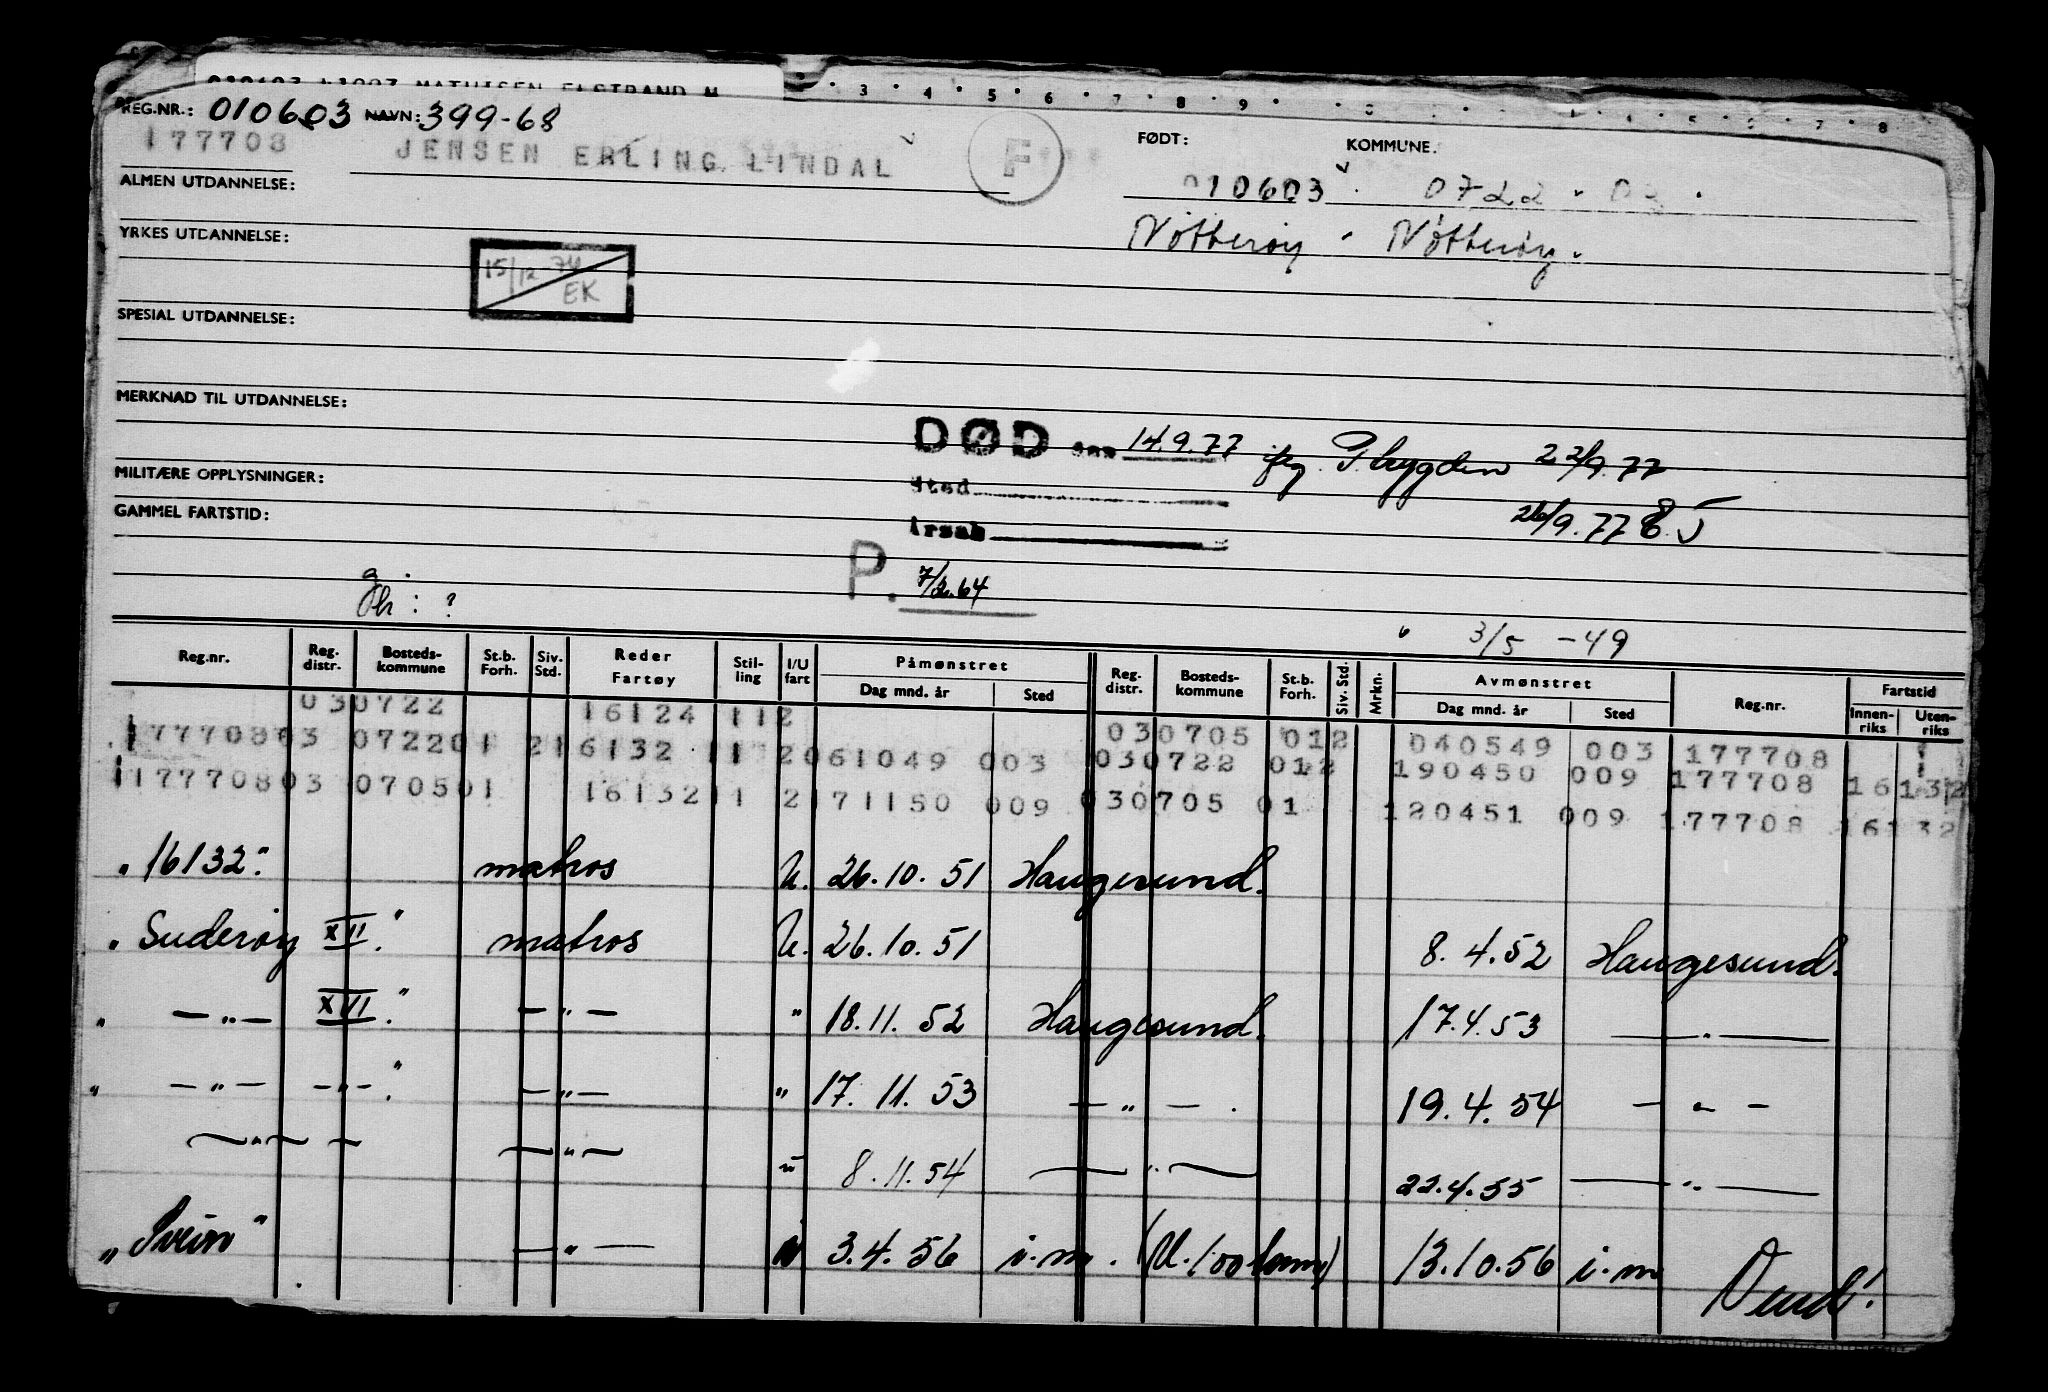 REG.NR.: 010603 NAVN: 399-68
177708 JENSEN ERLING LINDAL F
FØDT: KOMMUNE:
010603 0722
Nøtterøy Nøtterøy.
ALMEN UTDANNELSE:
YRKES UTDANNELSE:
15/12-74
EK
SPESIAL UTDANNELSE:
MERKNAD TIL UTDANNELSE:
DØD den 14.9.77 22/9.77
MILITÆRE OPPLYSNINGER:
Sted
26/9.77
GAMMEL FARTSTID:
Årsak
P. 7/2.64
?
" 3/5 -49
Reg.nr. Reg. distr. Bosteds-kommune St.b. Forh. Siv. Std. Reder Fartøy Stil-ling I/U fart Påmønstret Dag mnd. år Sted Reg. distr. Bosteds-kommune St.b. Forh. Siv. Std. Mrkn. Avmønstret Dag mnd. år Sted Reg.nr. Fartstid Innen-riks Uten-riks
030722 16124 112 030705 012 040549 003 177708
17770803 072201 216132 11 2061049 003 030722 012 190450 009 177708 16132
17770803 070501 16132 11 2171150 009 030705 01 120451 009 177708 16132
"16132" matros U. 26.10.51 Haugesund.
"Suderøy XII." matros U. 26.10.51 8.4.52 Haugesund.
" — " — XVI." — " — " 18.11.52 Haugesund. 17.4.53 — " —
" — " — — " — " — " — " 17.11.53 — " — . 19.4.54 — " —
— " — — — " — " 8.11.54 — " — 22.4.55 — " —
"Svein" — " — 3.4.56 i.m. 13.10.56 i.m
Vend!